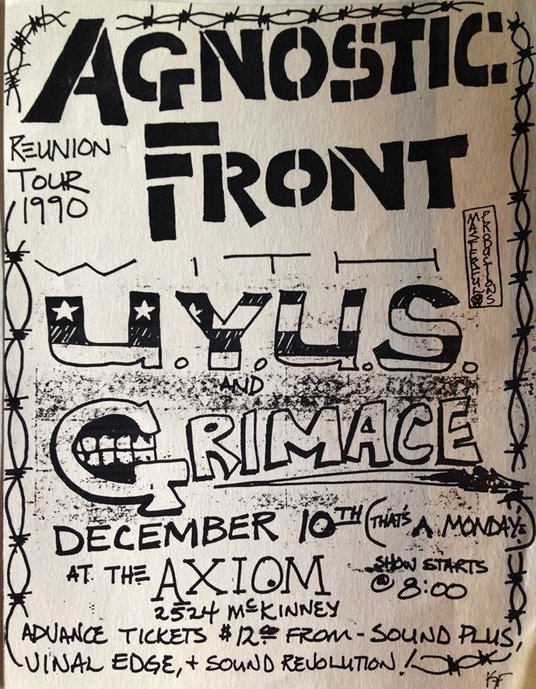 AGNOSTIC
FRONT
REUNION
TOUR
1990
MASTERFUL
PRODUCTIONS
WITH
U.Y.U.S.
AND
GRIMACE
DECEMBER 10TH (THAT'S A MONDAY)
AT THE AXIOM
SHOW STARTS
@ 8:00
2524 McKINNEY
ADVANCE TICKETS $12.00 FROM - SOUND PLUS,
VINAL EDGE, + SOUND REVOLUTION!